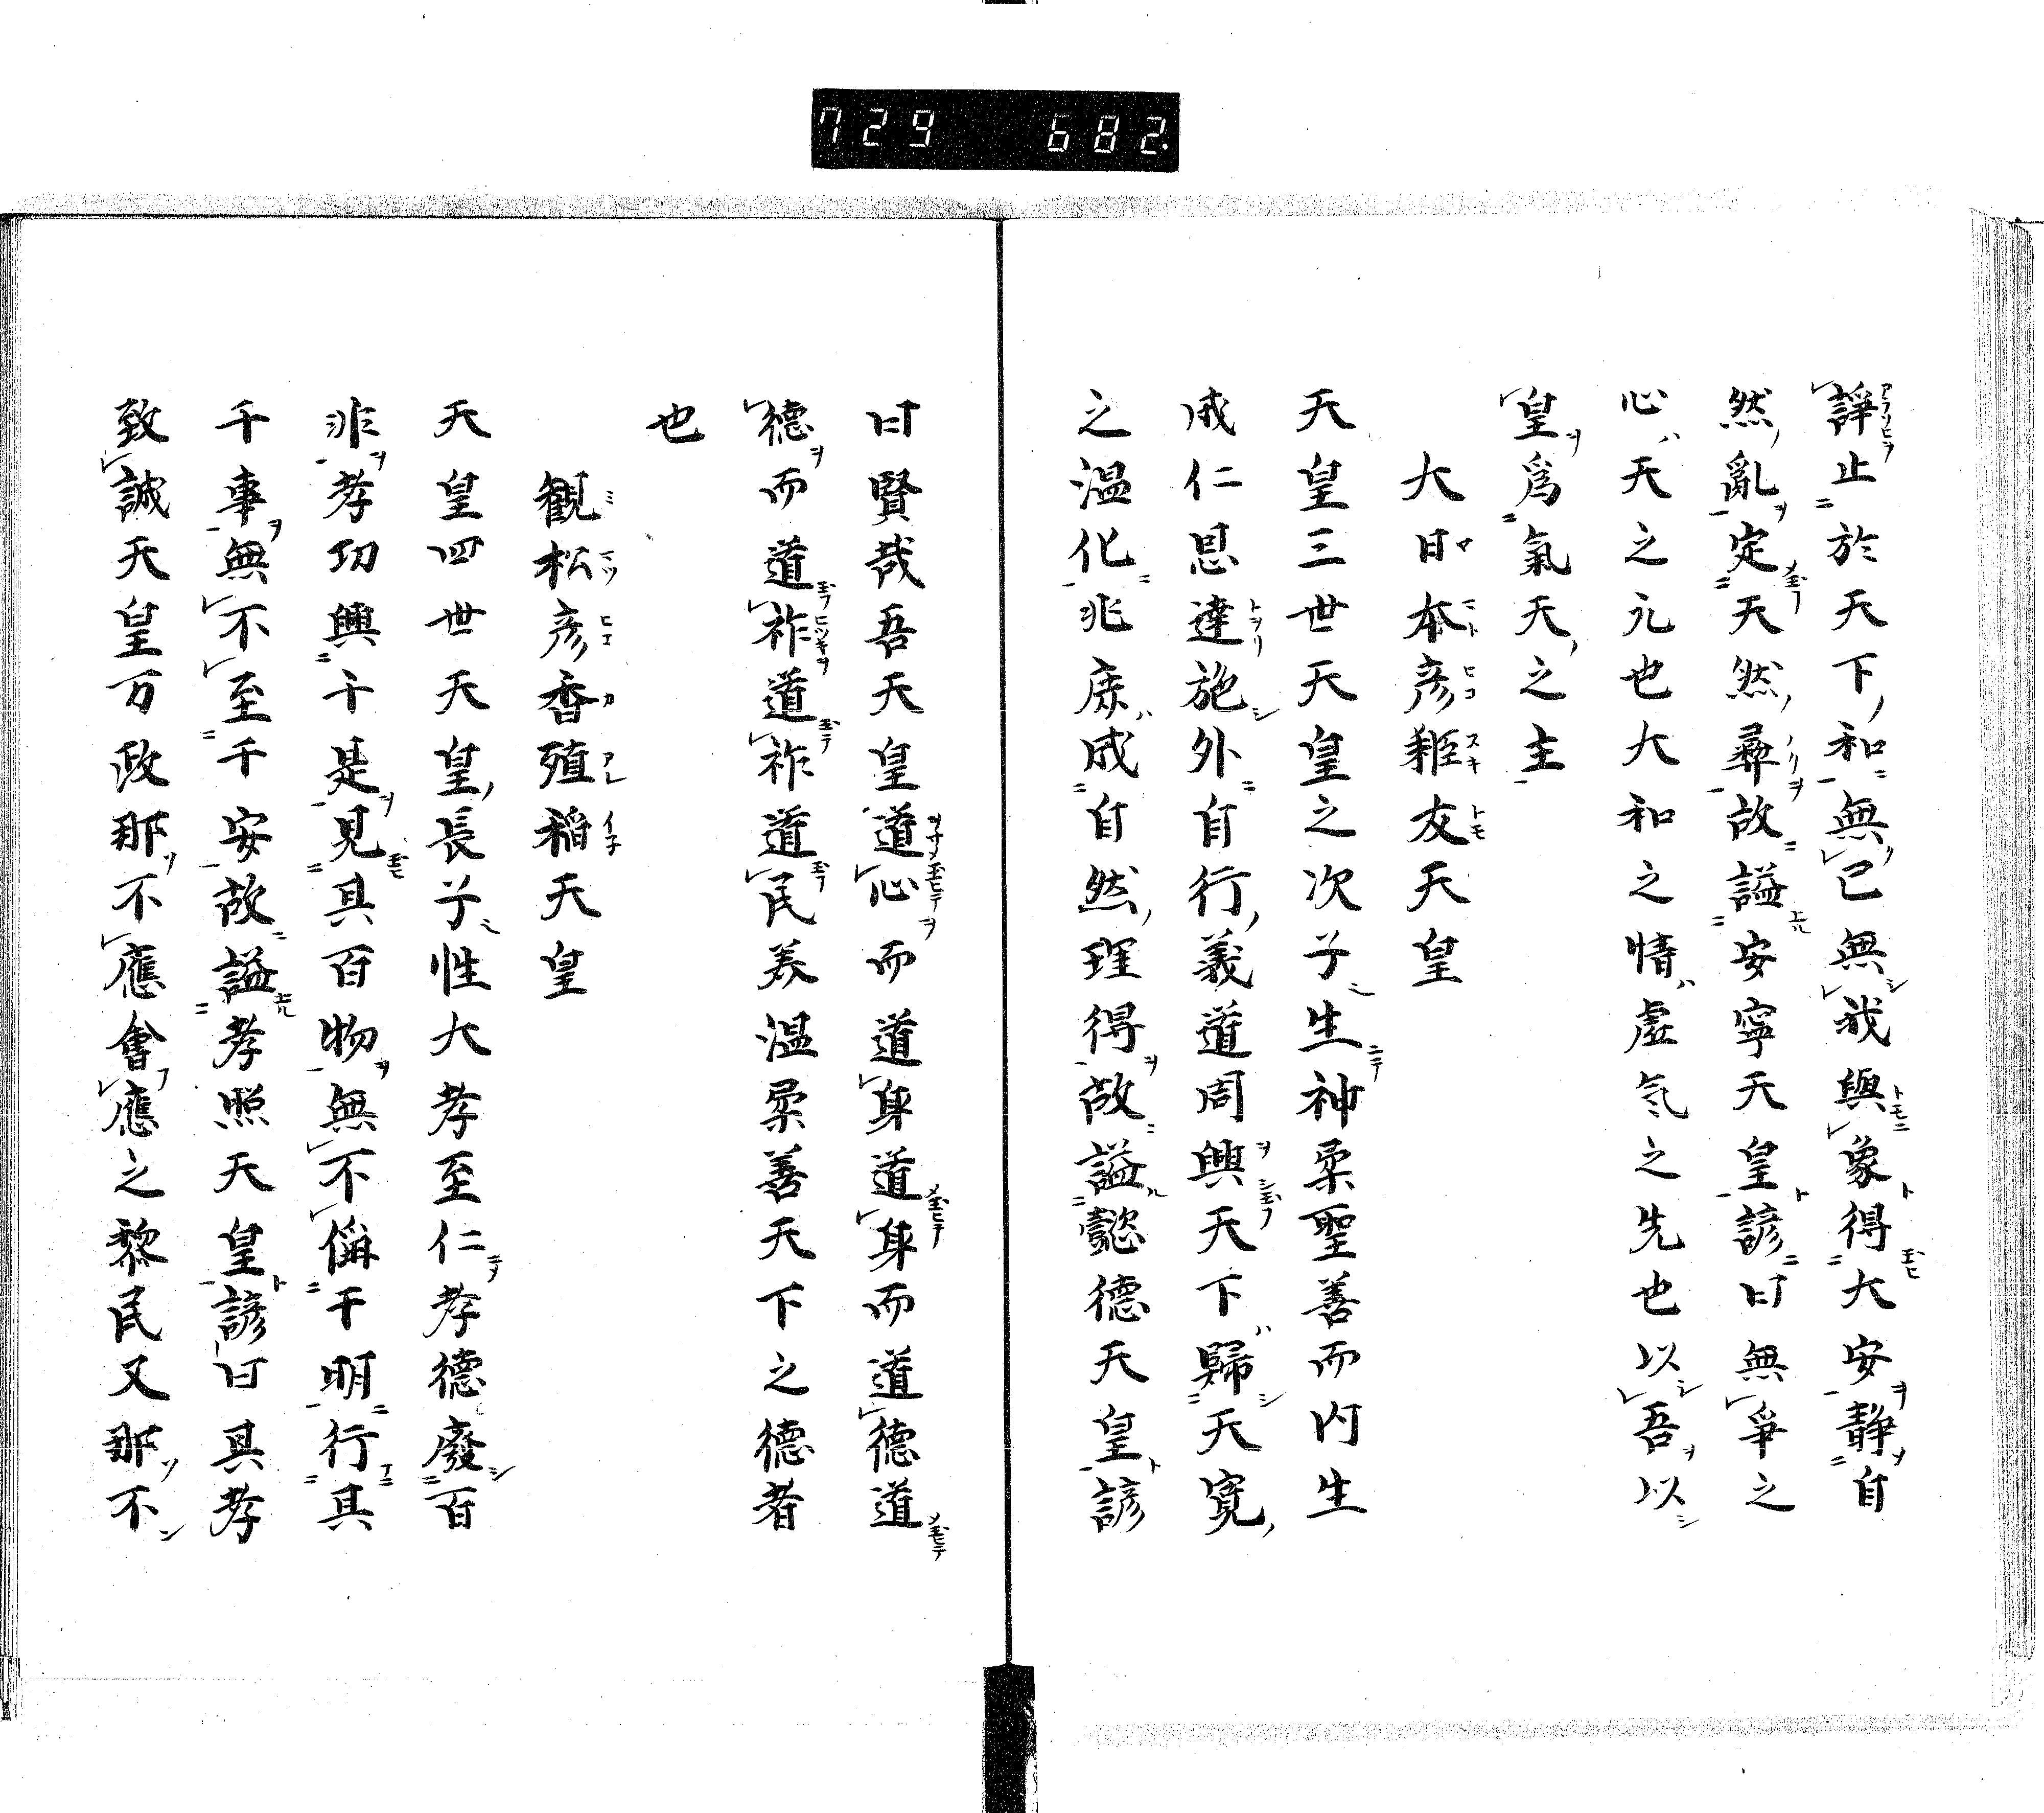 729 682
諍止於天下和無己無我與象得大安静自
然亂定天然彛故謚安寧天皇諺曰無爭之
心天之元也大和之情虚気之先也以吾以
皇爲氣天之主
大日本彦耜友天皇
天皇三世天皇之次子生神柔聖善而内生
成仁恩達施外自行義道周興天下歸天寛
之温化兆庶成自然理得故謚懿德天皇諺
曰賢哉吾天皇道心而道身道身而道德道
德而道祚道祚道民養温柔善天下之德者
也
観松彦香殖稲天皇
天皇四世天皇長子性大孝至仁孝德廢百
非孝切興千是見其百物無不備千明行其
千事無不至千安故謚孝照天皇諺曰其孝
致誠天皇万政那不應會應之黎民又那不